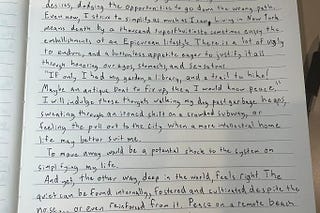 desires, dodging the opportunities to go down the wrong path.
Even now, I strive to simplify as much as I can. Living in New York
means death by a thousand superfluities to sometimes enjoy the
embellishments of an Epicurean lifestyle. There is a lot of ugly
to endure, and a bottomless appetite eager to justify it all
through honoring our egos, stomachs, and sensations.
"If only I had my garden, a library, and a trail to hike!
Maybe an antique boat to fix up, then I would know peace."
I will indulge these thoughts walking my dog past garbage heaps,
sweating through an ironed shirt on a crowded subway, or
feeling the pull out to the city when a more intellectual home
life may better suit me.
To move away would be a potential shock to the system on
simplifying my life.
And yet, the other way, deep in the world, feels right. The
quiet can be found internally, fostered and cultivated despite the
noise... or even reinforced from it. Peace on a remote beach